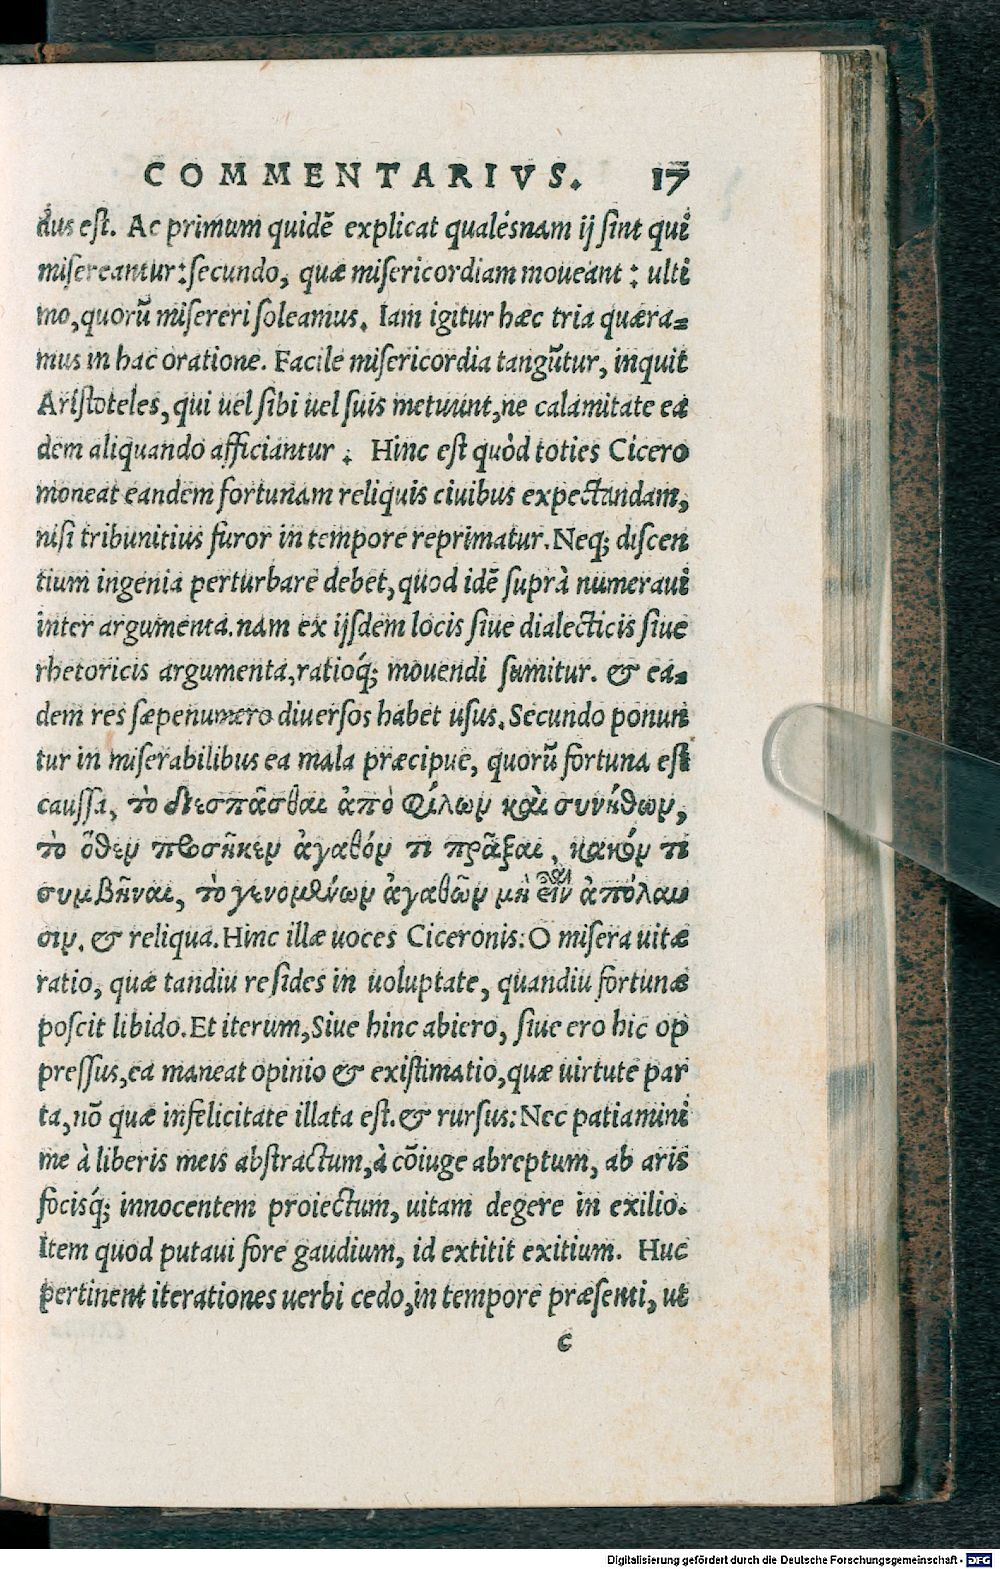 COMMENTARIVS. 17
dus est. Ac primum quidē explicat qualésnam ij sint qui
misereantur: secundo, quæ misericordiam moueant: ulti
mo, quorũ misereri soleamus. Iam igitur hæc tria quæra-
mus in hac oratione. Facile misericordia tangũtur, inquit
Aristoteles, qui uel sibi uel suis metuunt, ne calamitate ea
dem aliquando afficiantur. Hinc est quòd toties Cicero
moneat eandem fortunam reliquis ciuibus expectandam,
nisi tribunitius furor in tempore reprimatur. Neq; discen
tium ingenia perturbare debet, quod idē suprà numeraui
inter argumenta. nam ex ijsdem locis siue dialecticis siue
rhetoricis argumenta, ratioq́; mouendi sumitur. & ea-
dem res sæpenumero diuersos habet usus. Secundo ponun
tur in miserabilibus ea mala præcipue, quorũ fortuna est
caussa, τὸ διεσπᾶσθαι ἀπὸ φίλων καὶ συνήθων,
τὸ ὅθεν προσῆκεν ἀγαθόν τι πρᾶξαι, κακόν τι
συμβῆναι, τὸ γενομένων ἀγαθῶν μὴ εἶναι ἀπόλαυ
σιν. & reliqua. Hinc illæ uoces Ciceronis: O misera uitæ
ratio, quæ tandiu resides in uoluptate, quandiu fortunæ
poscit libido. Et iterum, Siue hinc abiero, siue ero hic op
pressus, ea maneat opinio & existimatio, quæ uirtute par
ta, nõ quæ infelicitate illata est. & rursus: Nec patiamini
me à liberis meis abstractum, à cõiuge abreptum, ab aris
focisq́; innocentem proiectum, uitam degere in exilio.
Item quod putaui fore gaudium, id extitit exitium. Huc
pertinent iterationes uerbi cedo, in tempore præsenti, ut
c
Digitalisierung gefördert durch die Deutsche Forschungsgemeinschaft - DFG